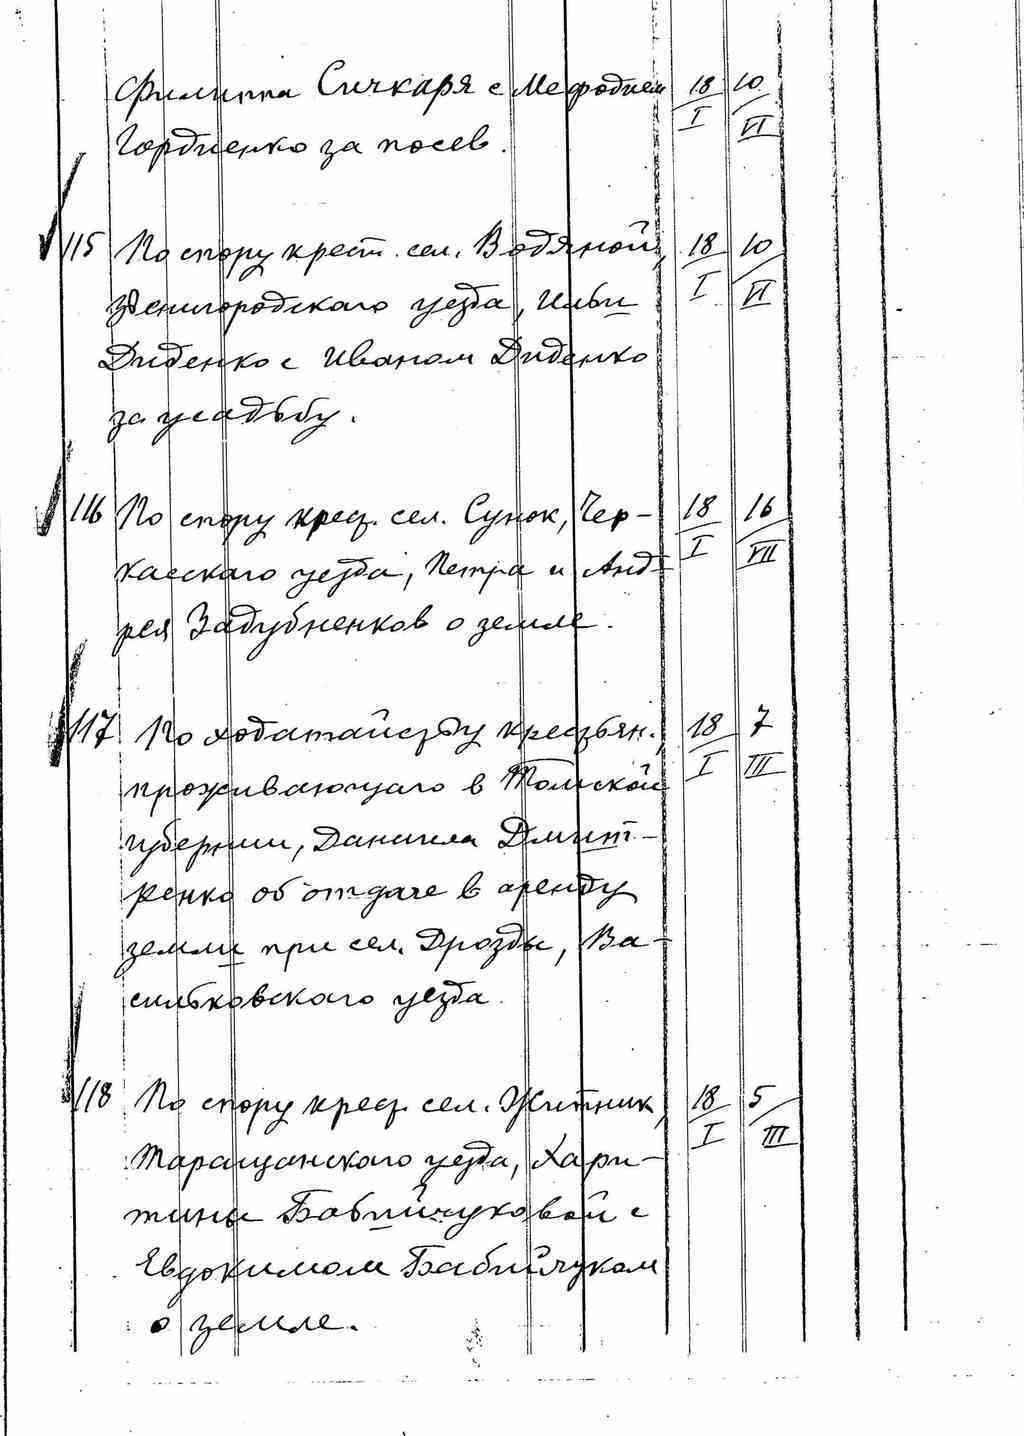 Филиппа Сичкаря с Мефодием 18 10
Гордиенко за посев. I VI
115 По спору крест. сел. Водяной, 18 10
Звенигородскаго уезда, Ильи I VI
Диденко с Иваном Диденко
за усадьбу.
116 По спору крест. сел. Сунок, Чер- 18 16
касскаго уезда, Петра и Анд- I VII
рея Задубненков о земле.
117 По ходатайству крестьян. 18 7
проживающаго в Томской I III
губернии, Даниила Дмит-
ренко об отдаче в аренду
земли при сел. Дрозды, Ва-
сильковскаго уезда.
118 По спору крест. сел. Житник, 18 5
Таращанскаго уезда, Хари- I III
тины Бабийчуковой с
Евдокимом Бабийчуком
о земле.